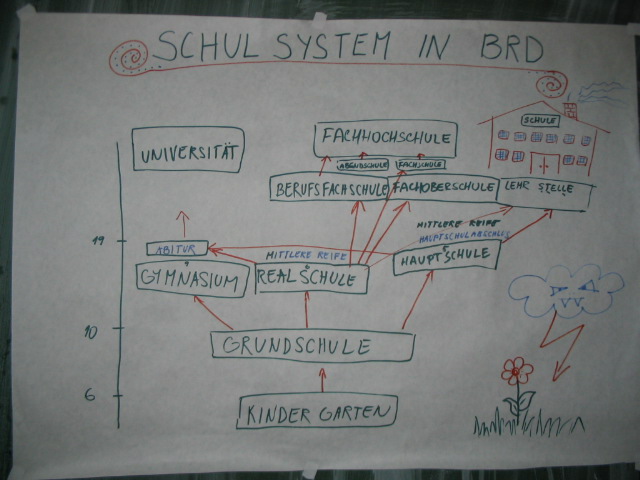 SCHULSYSTEM IN BRD
SCHULE
FACHHOCHSCHULE
UNIVERSITÄT
ABENDSCHULE
FACHSCHULE
BERUFSFACHSCHULE
FACHOBERSCHULE
LEHR STELLE
MITTLERE REIFE
HAUPTSCHULABSCHLUSS
19
ABITUR
MITTLERE REIFE
GYMNASIUM
REALSCHULE
HAUPTSCHULE
10
GRUNDSCHULE
6
KINDER GARTEN